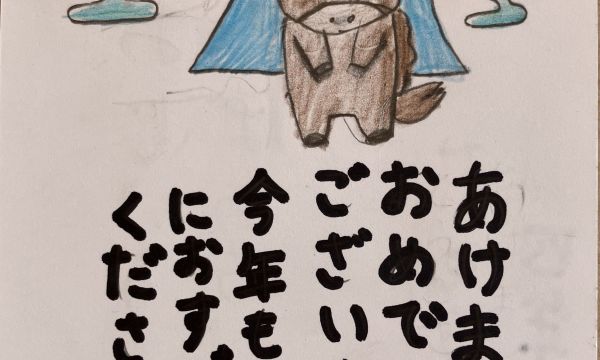 あけま
おめで
ござい
今年も
におす
くださ